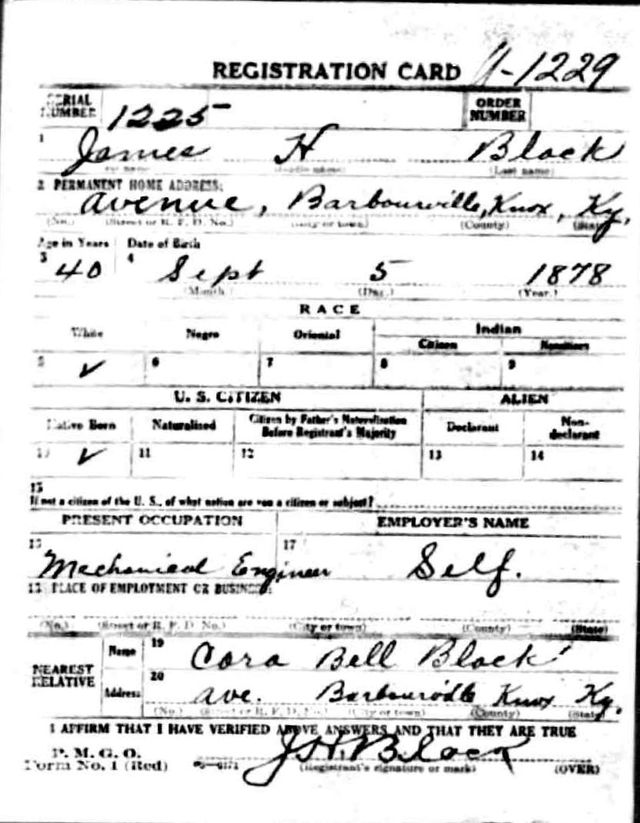 REGISTRATION CARD
-1229
SERIAL NUMBER 1225 ORDER NUMBER
1 James H Black
(Last name)
2 PERMANENT HOME ADDRESS:
avenue, Barbourville, Knox, Ky.
(No.) (Street or R. F. D. No.) (City or town) (County) (State)
Age in Years Date of Birth
3 40 4 Sept 5 1878
(Month.) (Day.) (Year.)
RACE
White Negro Oriental Indian
Citizen Noncitizen
5 ✓ 6 7 8 9
U. S. CITIZEN ALIEN
Native Born Naturalized Citizen by Father's Naturalization Before Registrant's Majority Declarant Non-declarant
10 ✓ 11 12 13 14
15
If not a citizen of the U. S., of what nation are you a citizen or subject?
PRESENT OCCUPATION EMPLOYER'S NAME
16 Mechanical Engineer 17 Self.
18 PLACE OF EMPLOYMENT OR BUSINESS:
(No.) (Street or R. F. D. No.) (City or town) (County) (State)
NEAREST RELATIVE
Name 19 Cora Bell Black
Address 20 ave. Barbourville Knox Ky.
(No.) (Street or R. F. D. No.) (City or town) (County) (State)
I AFFIRM THAT I HAVE VERIFIED ABOVE ANSWERS AND THAT THEY ARE TRUE
P. M. G. O.
Form No. 1 (Red) J.H. Black
(Registrant's signature or mark) (OVER)